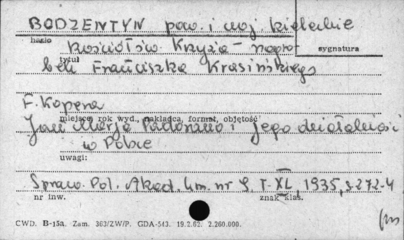 BODZENTYN pow. i woj kieleckie
hasło
kościół św. Krzyża - nagro
sygnatura
tytuł
bek Franciszka Krasińskiego
F. Kopera
miejsce, rok wyd., nakładca, format, objętość
Jan Maria Padovano i jego działalność
w Polsce
uwagi:
Spraw. Pol. Akad. Um. nr 9 T. XL, 1935, s 272-4
nr inw.
znak klas.
CWD. B-15a. Zam. 303/ZW/P. GDA-543. 19.2.62. 2.260.000.